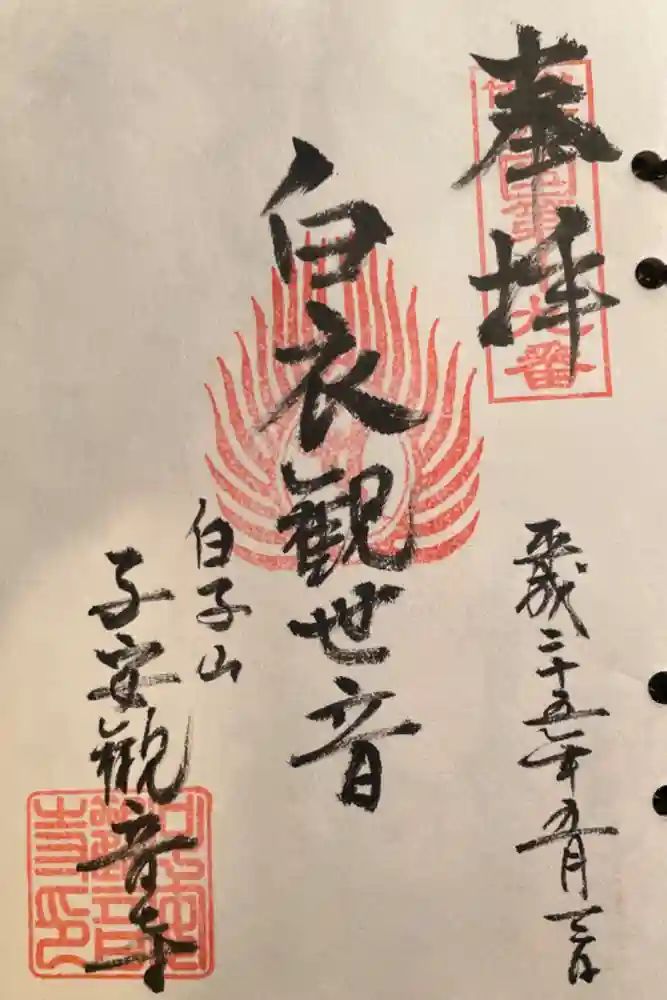 奉拝
番
平成二十五年五月三日
白衣觀世音
白子山
子安観音寺